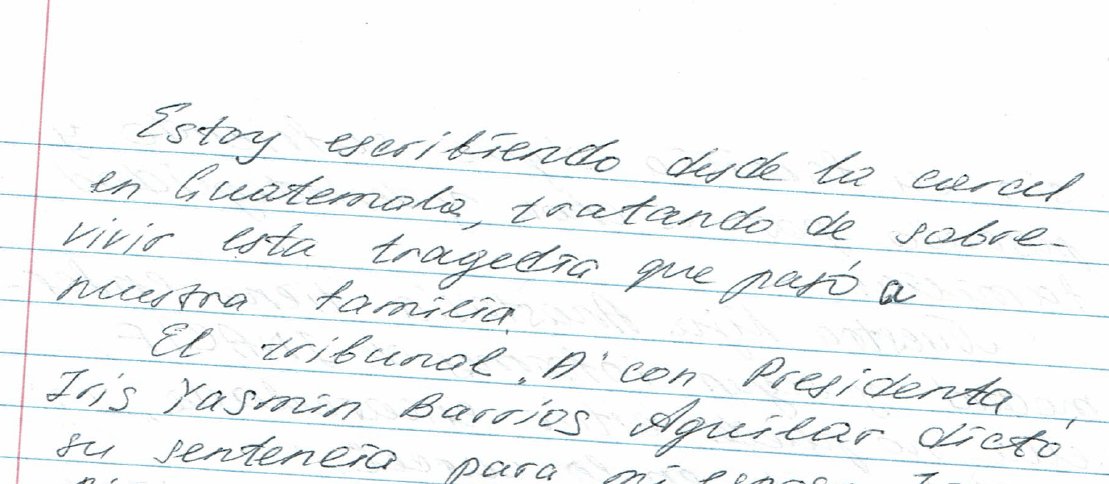 Estoy escribiendo desde la carcel
en Guatemala, tratando de sobre-
vivir esta tragedia que pasó a
nuestra familia.
El tribunal "A" con Presidenta
Iris Yasmin Barrios Aguilar dictó
su sentencia para mi